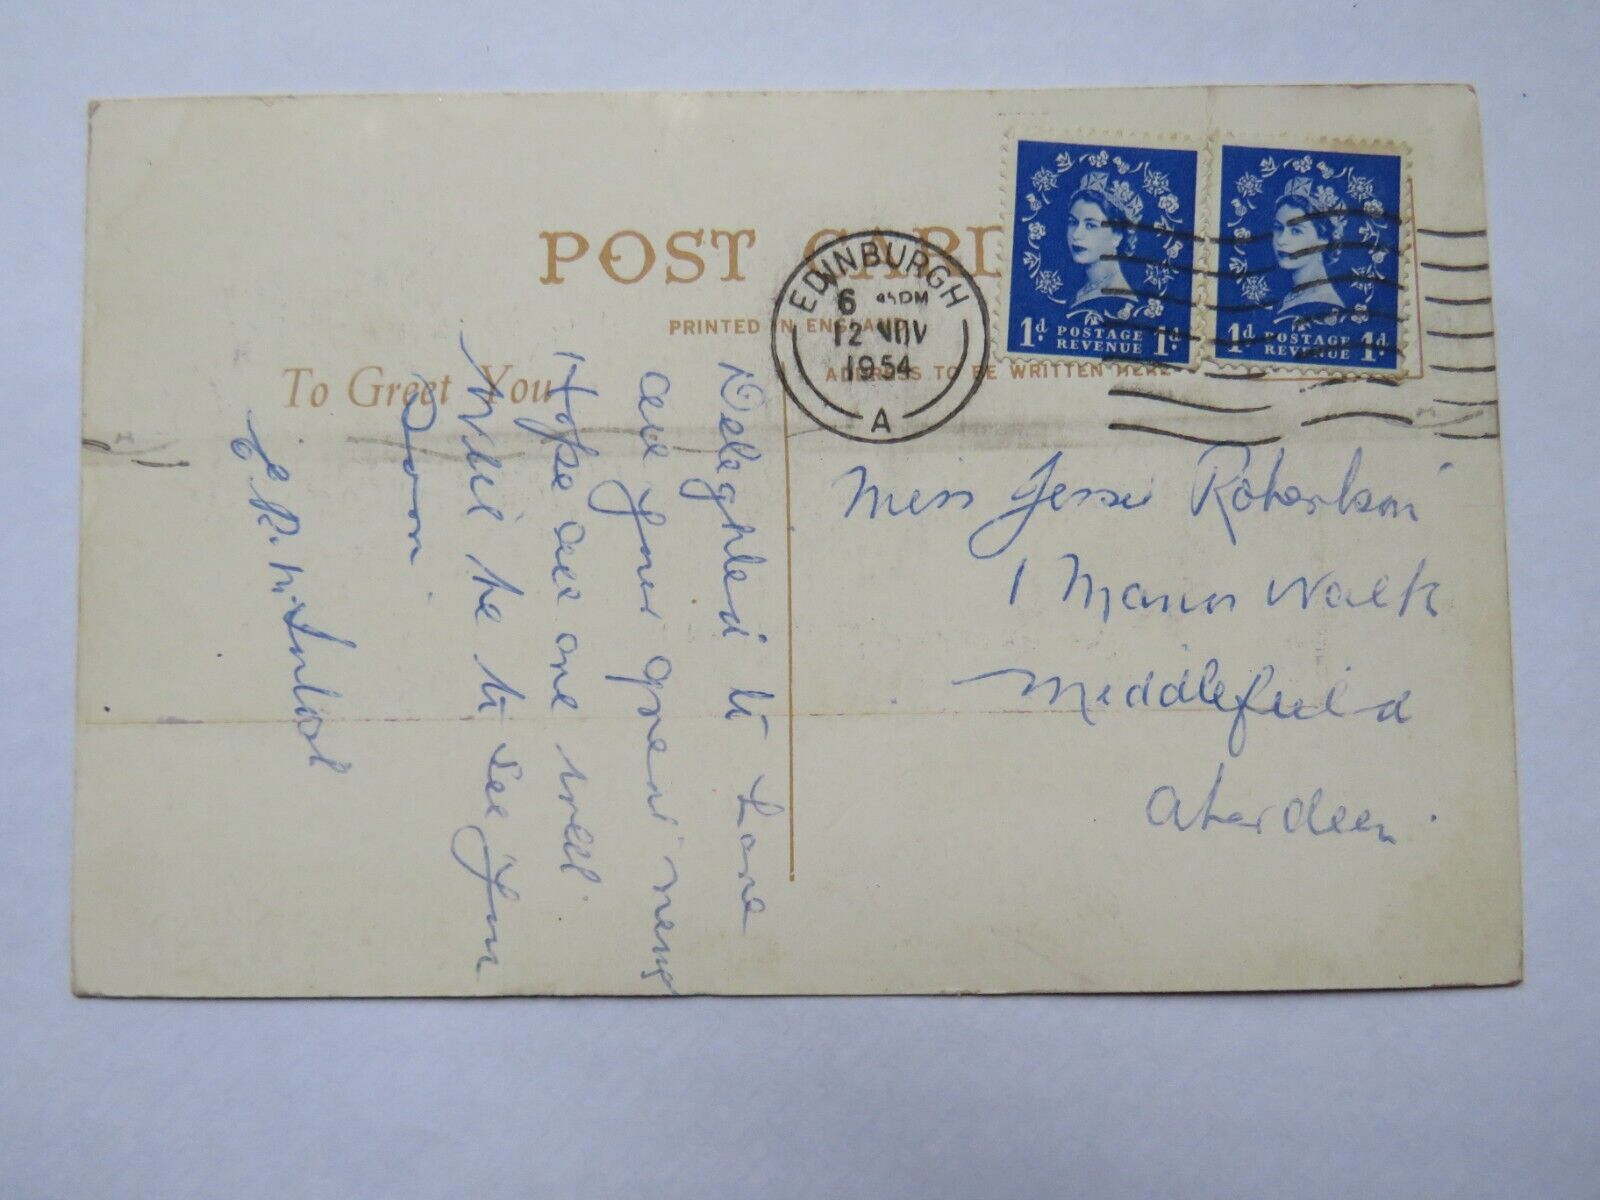 POST CARD
PRINTED IN ENGLAND
ADDRESS TO BE WRITTEN HERE
To Greet You
EDINBURGH
6 PM
12
1954
A
1d POSTAGE REVENUE 1d
1d POSTAGE REVENUE 1d
Delighted to have
all your good news
Hope all are well
Will be to see you
Soon
Miss Jessie Robertson
1 Manor Walk
Middlefield
Aberdeen